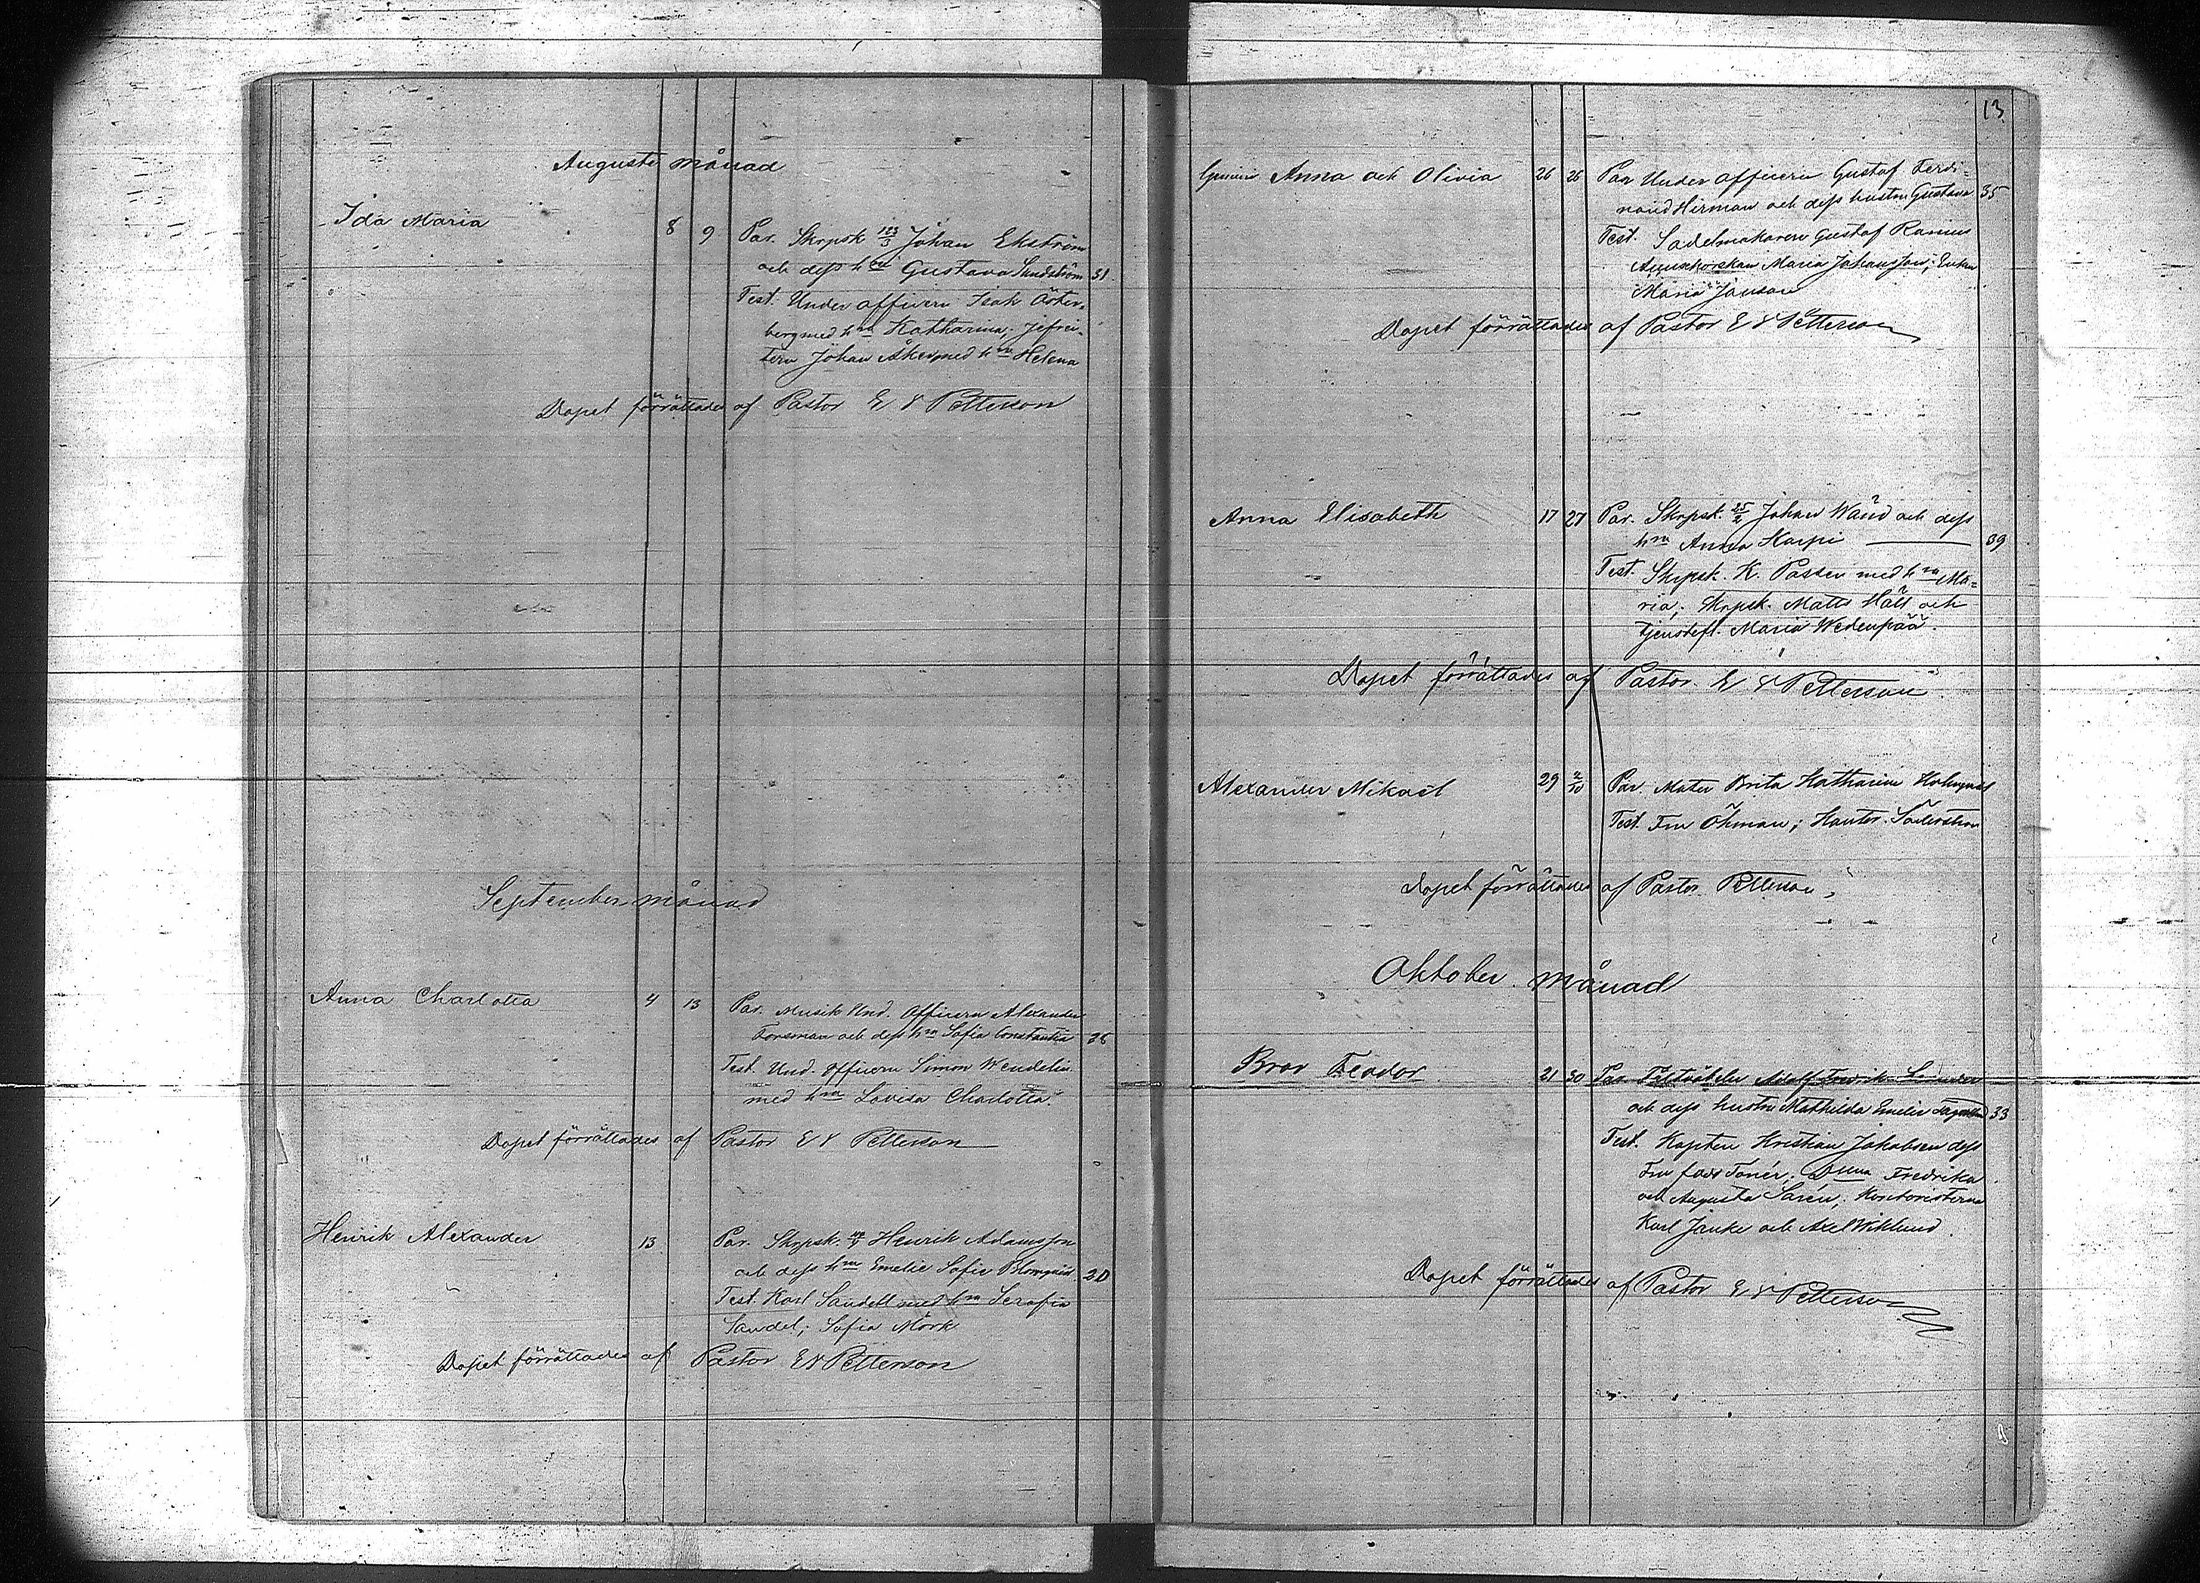 Augusti månad
Ida Maria 8 9 Par. Skrpsk 123/3 Johan Ekström
och dess hru Gustava Sundström 31
Test. Under officern Isak Öster-
berg med hru Katharina; Jefrei-
tern Johan Åker med hru Helena
Dopet förrättades af Pastor E V Petterson
September månad
Anna Charlotta 4 13 Par. Musik Und. Officern Alexander
Forsman och dess hru Sofia Constantia 36
Test. Und. officern Simon Wendelin
med hru Lovisa Charlotta
Dopet förrättades af Pastor E V Petterson
Henrik Alexander 13 Par. Skrpsk. Henrik Adamsson
och dess hru Emelie Sofia Blomqvist 30
Test. Karl Sandell med hru Serafia
Sandel; Sofia Mörk
Dopet förrättades af Pastor E V Petterson
13
Anna och Olivia 26 26 Par Under officern Gustaf Ferdi-
nand Hirman och dess hustru Gustava 35
Test. Sadelmakaren Gustaf Ramius
Maria Johansson; Enkan
Maria Janson
Dopet förrättades af Pastor E V Petterson
Anna Elisabeth 17 27 Par. Skrpsk. 25/2 Johan Wänd och dess
hru Anna Harpi 39
Test. Skrpsk. K. Passen med hru Ma-
ria; Skrpsk. Matts Hält och
tjenstefl. Maria Wedenpää.
Dopet förrättades af Pastor E V Petterson
Alexander Mikael 29 2/10 Par. Mater Brita Katharina Holmqvist
Test. Fru Öhman; Kantor. Söderström
Dopet förrättades af Pastor Petterson
Oktober månad
Bror Feodor 21 30 Par Fältväbeln Adolf Fredrik
och dess hustru Mathilda Emelie 33
Test. Kapten Kristian Jakobsen dess
Fru Tonér, Fredrika
och Augusta Sarén; Kontoristerna
Karl Janke och Axel Wiklund.
Dopet förrättades af Pastor E V Petterson